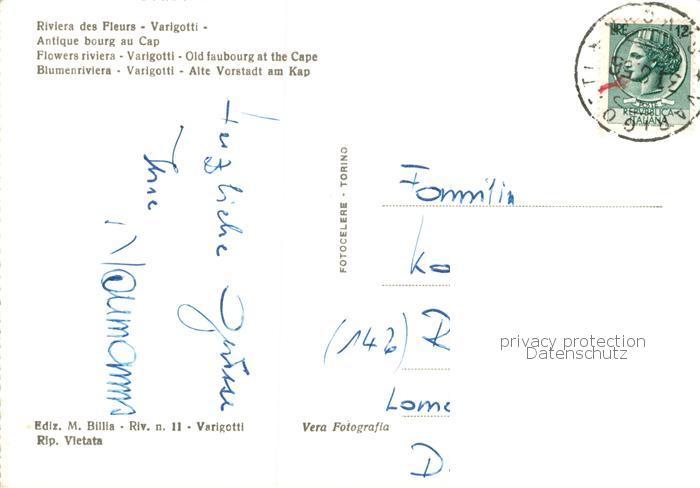 Riviera des Fleurs - Varigotti -
Antique bourg au Cap
Flowers riviera - Varigotti - Old faubourg at the Cape
Blumenriviera - Varigotti - Alte Vorstadt am Kap
Herzliche Grüsse
Ihre
Naumanns
FOTOCELERE - TORINO
LIRE 12
POSTE
REPVBBLICA
ITALIANA
Familie
Ko
(142) R
Lome
D.
privacy protection
Datenschutz
Ediz. M. Billia - Riv. n. 11 - Varigotti
Rip. Vietata
Vera Fotografia